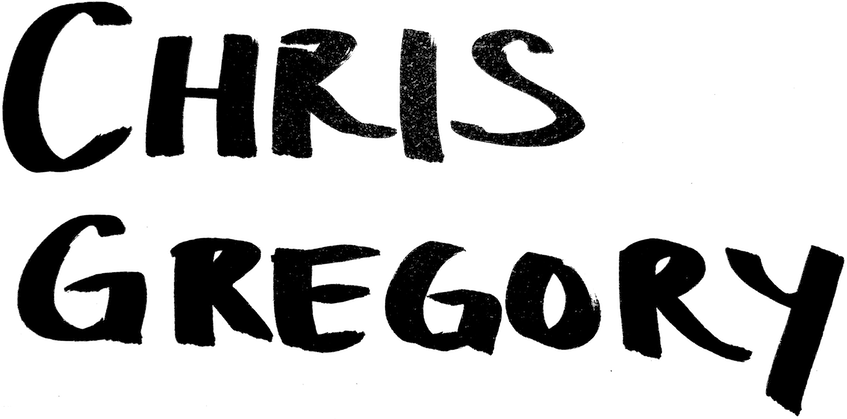 CHRIS
GREGORY